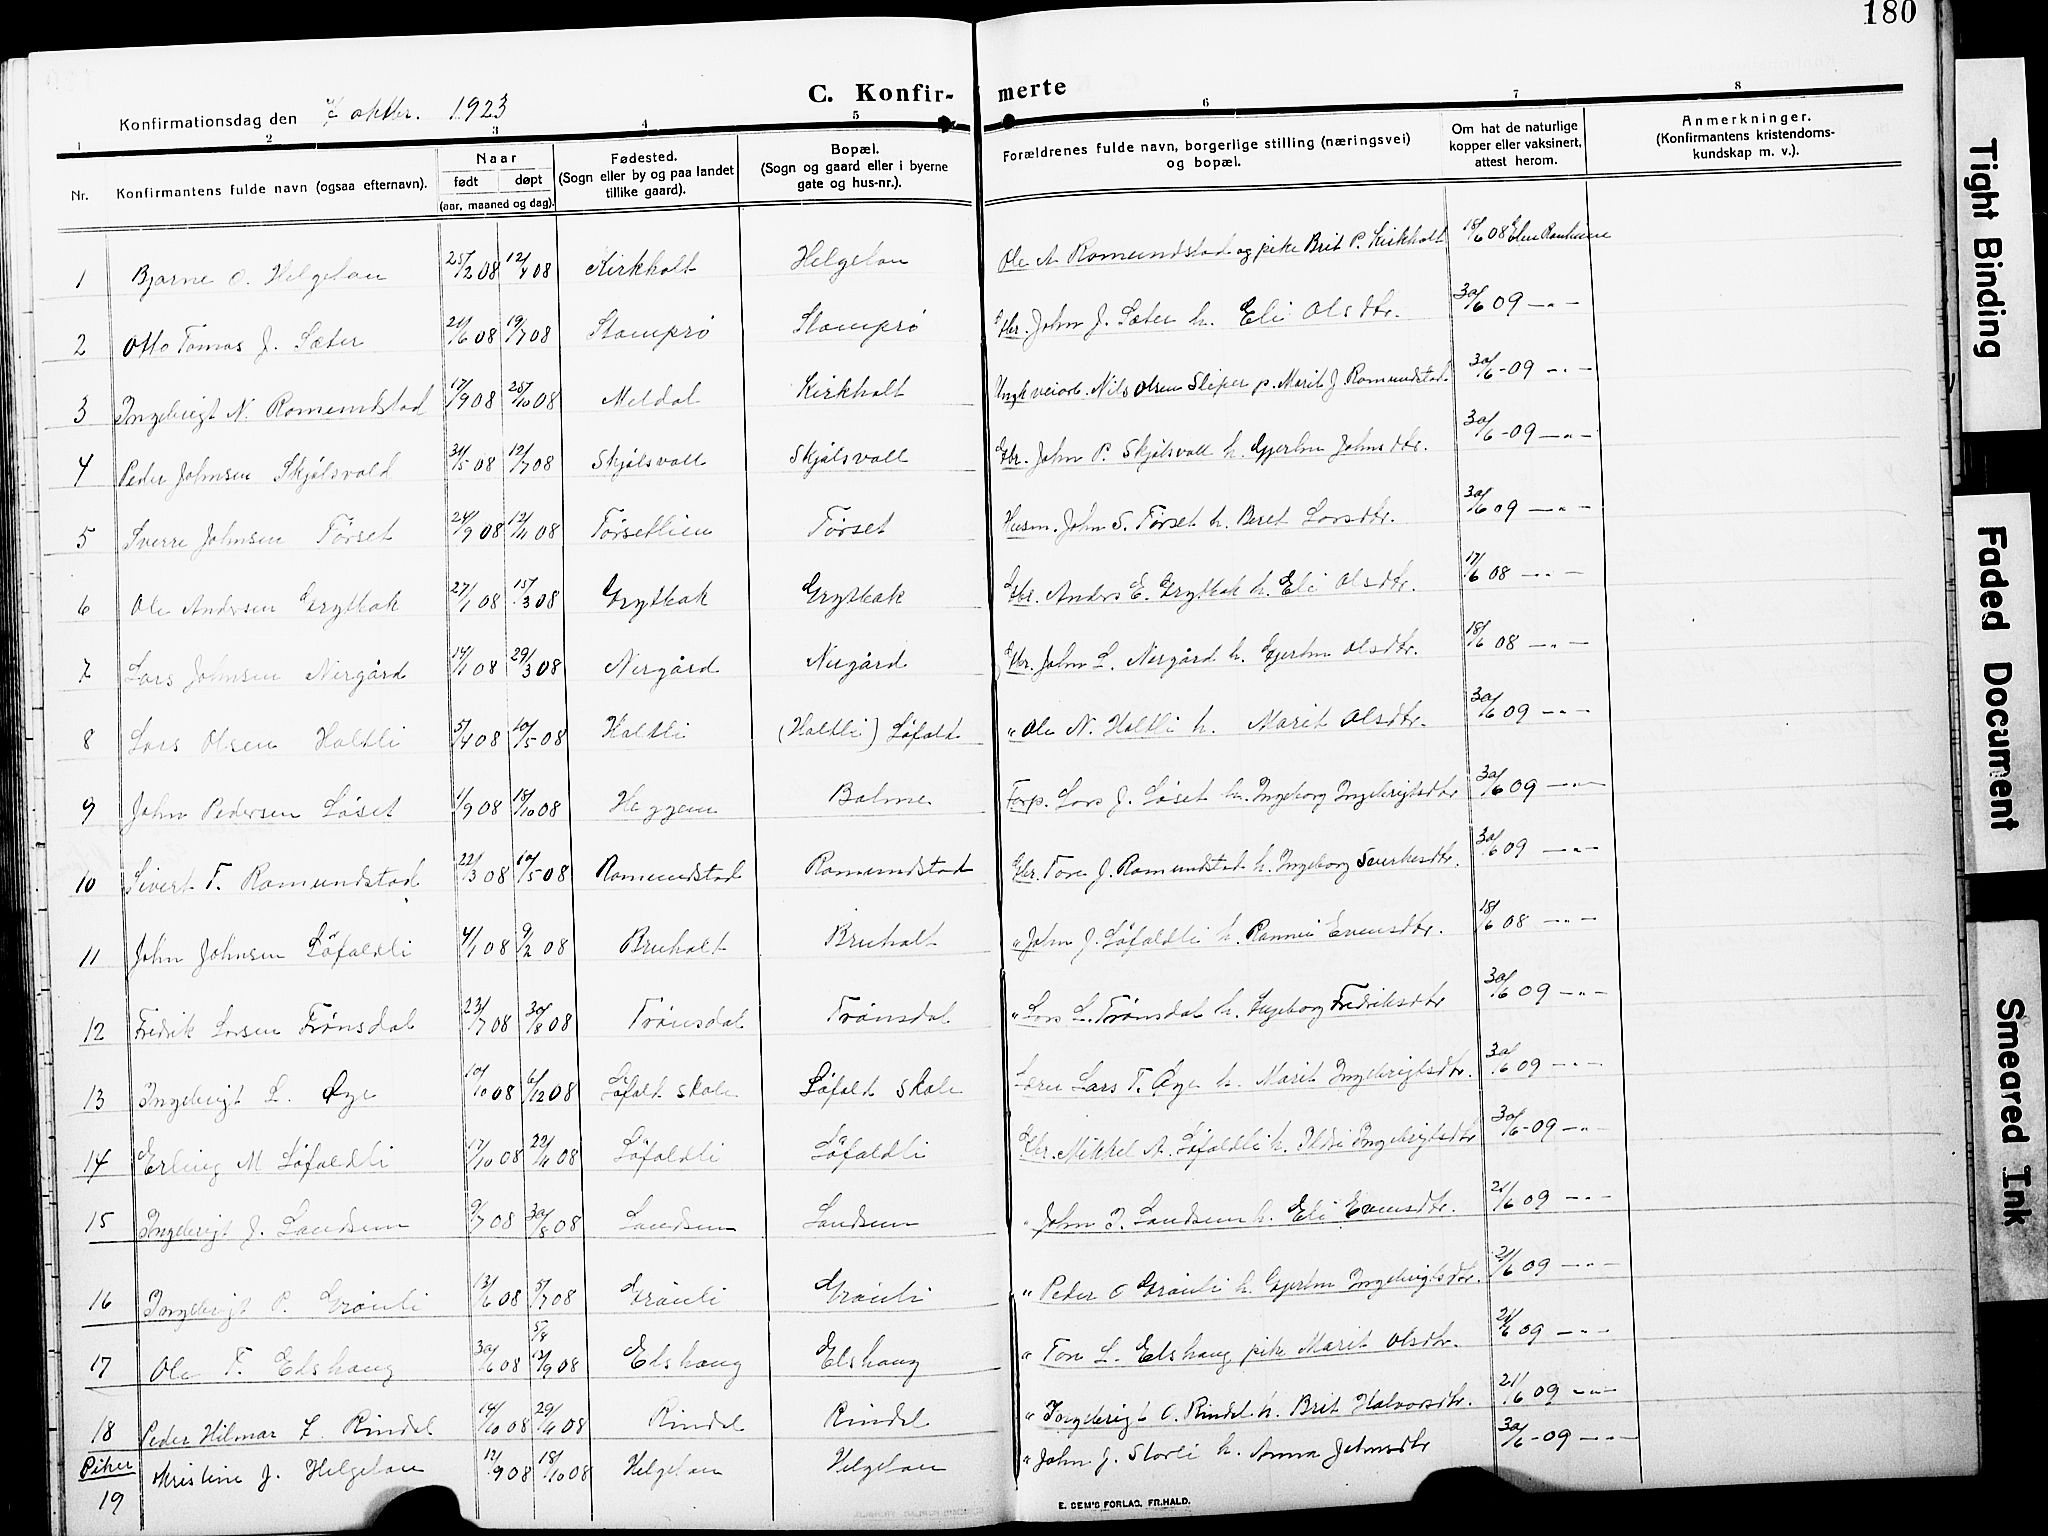 180
C. Konfir- merte
Konfirmationsdag den 7 oktbr. 1923
1 2 3 4 5 6 7 8
Nr. Konfirmantens fulde navn (ogsaa efternavn). Naar født døpt (aar, maaned og dag). Fødested. (Sogn eller by og paa landet tillike gaard). Bopæl. (Sogn og gaard eller i byerne gate og hus-nr.). Forældrenes fulde navn, borgerlige stilling (næringsvei) og bopæl. Om hat de naturlige kopper eller vaksinert, attest herom. Anmerkninger. (Konfirmantens kristendoms-kundskap m. v.).
1 Bjarne O. Helgetun 25/2 08 12/4 08 Kirkholt Helgetun Ole A Romundstad og pike Brit P. Kirkholt 18/6 08
2 Otto Tomas J. Sæter 21/6 08 19/7 08 Stomprø Stomprø Gbr. John J. Sæter h. Eli Olsdtr. 30/6 09 — " —
3 Ingebrigt N. Romundstad 17/9 08 25/10 08 Meldal Kirkholt Ungk veiarb. Nils Olsen Sliper p. Marit J Romundstad 30/6 - 09 — " —
4 Peder Johnsen Skjølsvold 31/5 08 12/7 08 Skjølsvoll Skjølsvoll Gbr. John P. Skjølsvoll h. Gjertru Johnsdtr. 30/6 - 09 — " —
5 Sverre Johnsen Tørset 24/9 08 12/11 08 Tørsetlien Tørset Husm. John S. Tørset h. Beret Larsdtr. 30/6 09 — " —
6 Ole Andersen Grytbak 27/1 08 15/3 08 Grytbak Grytbak Gbr. Anders E. Grytbak h. Eli Olsdtr. 17/6 08 — " —
7 Lars Johnsen Nergård 14/1 08 29/3 08 Nergård Nergård Gbr. John L. Nergård h. Gjertru Olsdtr. 18/6 08 — " —
8 Lars Olsen Holtli 5/4 08 10/5 08 Holtli (Holtli) Løfald " Ole N. Holtli h. Marit Olsdtr. 30/6 09 — " —
9 John Pedersen Løset 1/9 08 18/10 08 Heggem Bolme Forp. Lars J. Løset h. Ingeborg Ingebrigtsdtr 30/6 09 — " —
10 Sivert T. Romundstad 22/3 08 10/5 08 Romundstad Romundstad Gbr. Tore J. Romundstad h. Ingeborg Sverkesdtr. 30/6 09 — " —
11 John Johnsen Løfaldli 4/1 08 9/2 08 Bruholt Bruholt " John J. Løfaldli h. Rannei Evensdtr. 18/6 08 — " —
12 Fredrik Larsen Trønsdal 23/7 08 30/8 08 Trønsdal Trønsdal " Lars L. Trønsdal h. Ingeborg Fredriksdtr 30/6 09 — " —
13 Ingebrigt L. Øye 10/10 08 6/12 08 Løfald skole Løfald skole Lærer Lars T. Øye h. Marit Ingebrigtsdtr. 30/6 09 — " —
14 Erling M Løfaldli 17/10 08 22/11 08 Løfaldli Løfaldli Gbr. Mikkel A. Løfaldli h. Ildri Ingebrigtsdtr 30/6 - 09 — " —
15 Ingebrigt J. Landsem 9/7 08 30/8 08 Landsem Landsem " John I. Landsem h. Eli Evensdtr. 21/6 09 — " —
16 Ingebrigt P. Grønli 13/6 08 5/7 08 Grønli Grønli " Peder O Grønli h. Gjertru Ingebrigtsdtr. 21/6 09 — " —
17 Ole T. Elshaug 30/6 08 5/8 13/9 08 Elshaug Elshaug " Tore L. Elshaug pike Marit Olsdtr. 21/6 09 — " —
18 Peder Hilmar I. Rindal 14/10 08 29/11 08 Rindal Rindal " Ingebrigt O. Rindal h. Brit Halvorsdtr. 21/6 09 — " —
Piker
19 Kristine J. Helgetun 12/9 08 18/10 08 Helgetun Helgetun " John J. Storli h. Anna Johnsdtr 30/6 - 09 — " —
E. SEM'S FORLAG, FR.HALD.
Tight Binding
Faded Document
Smeared Ink